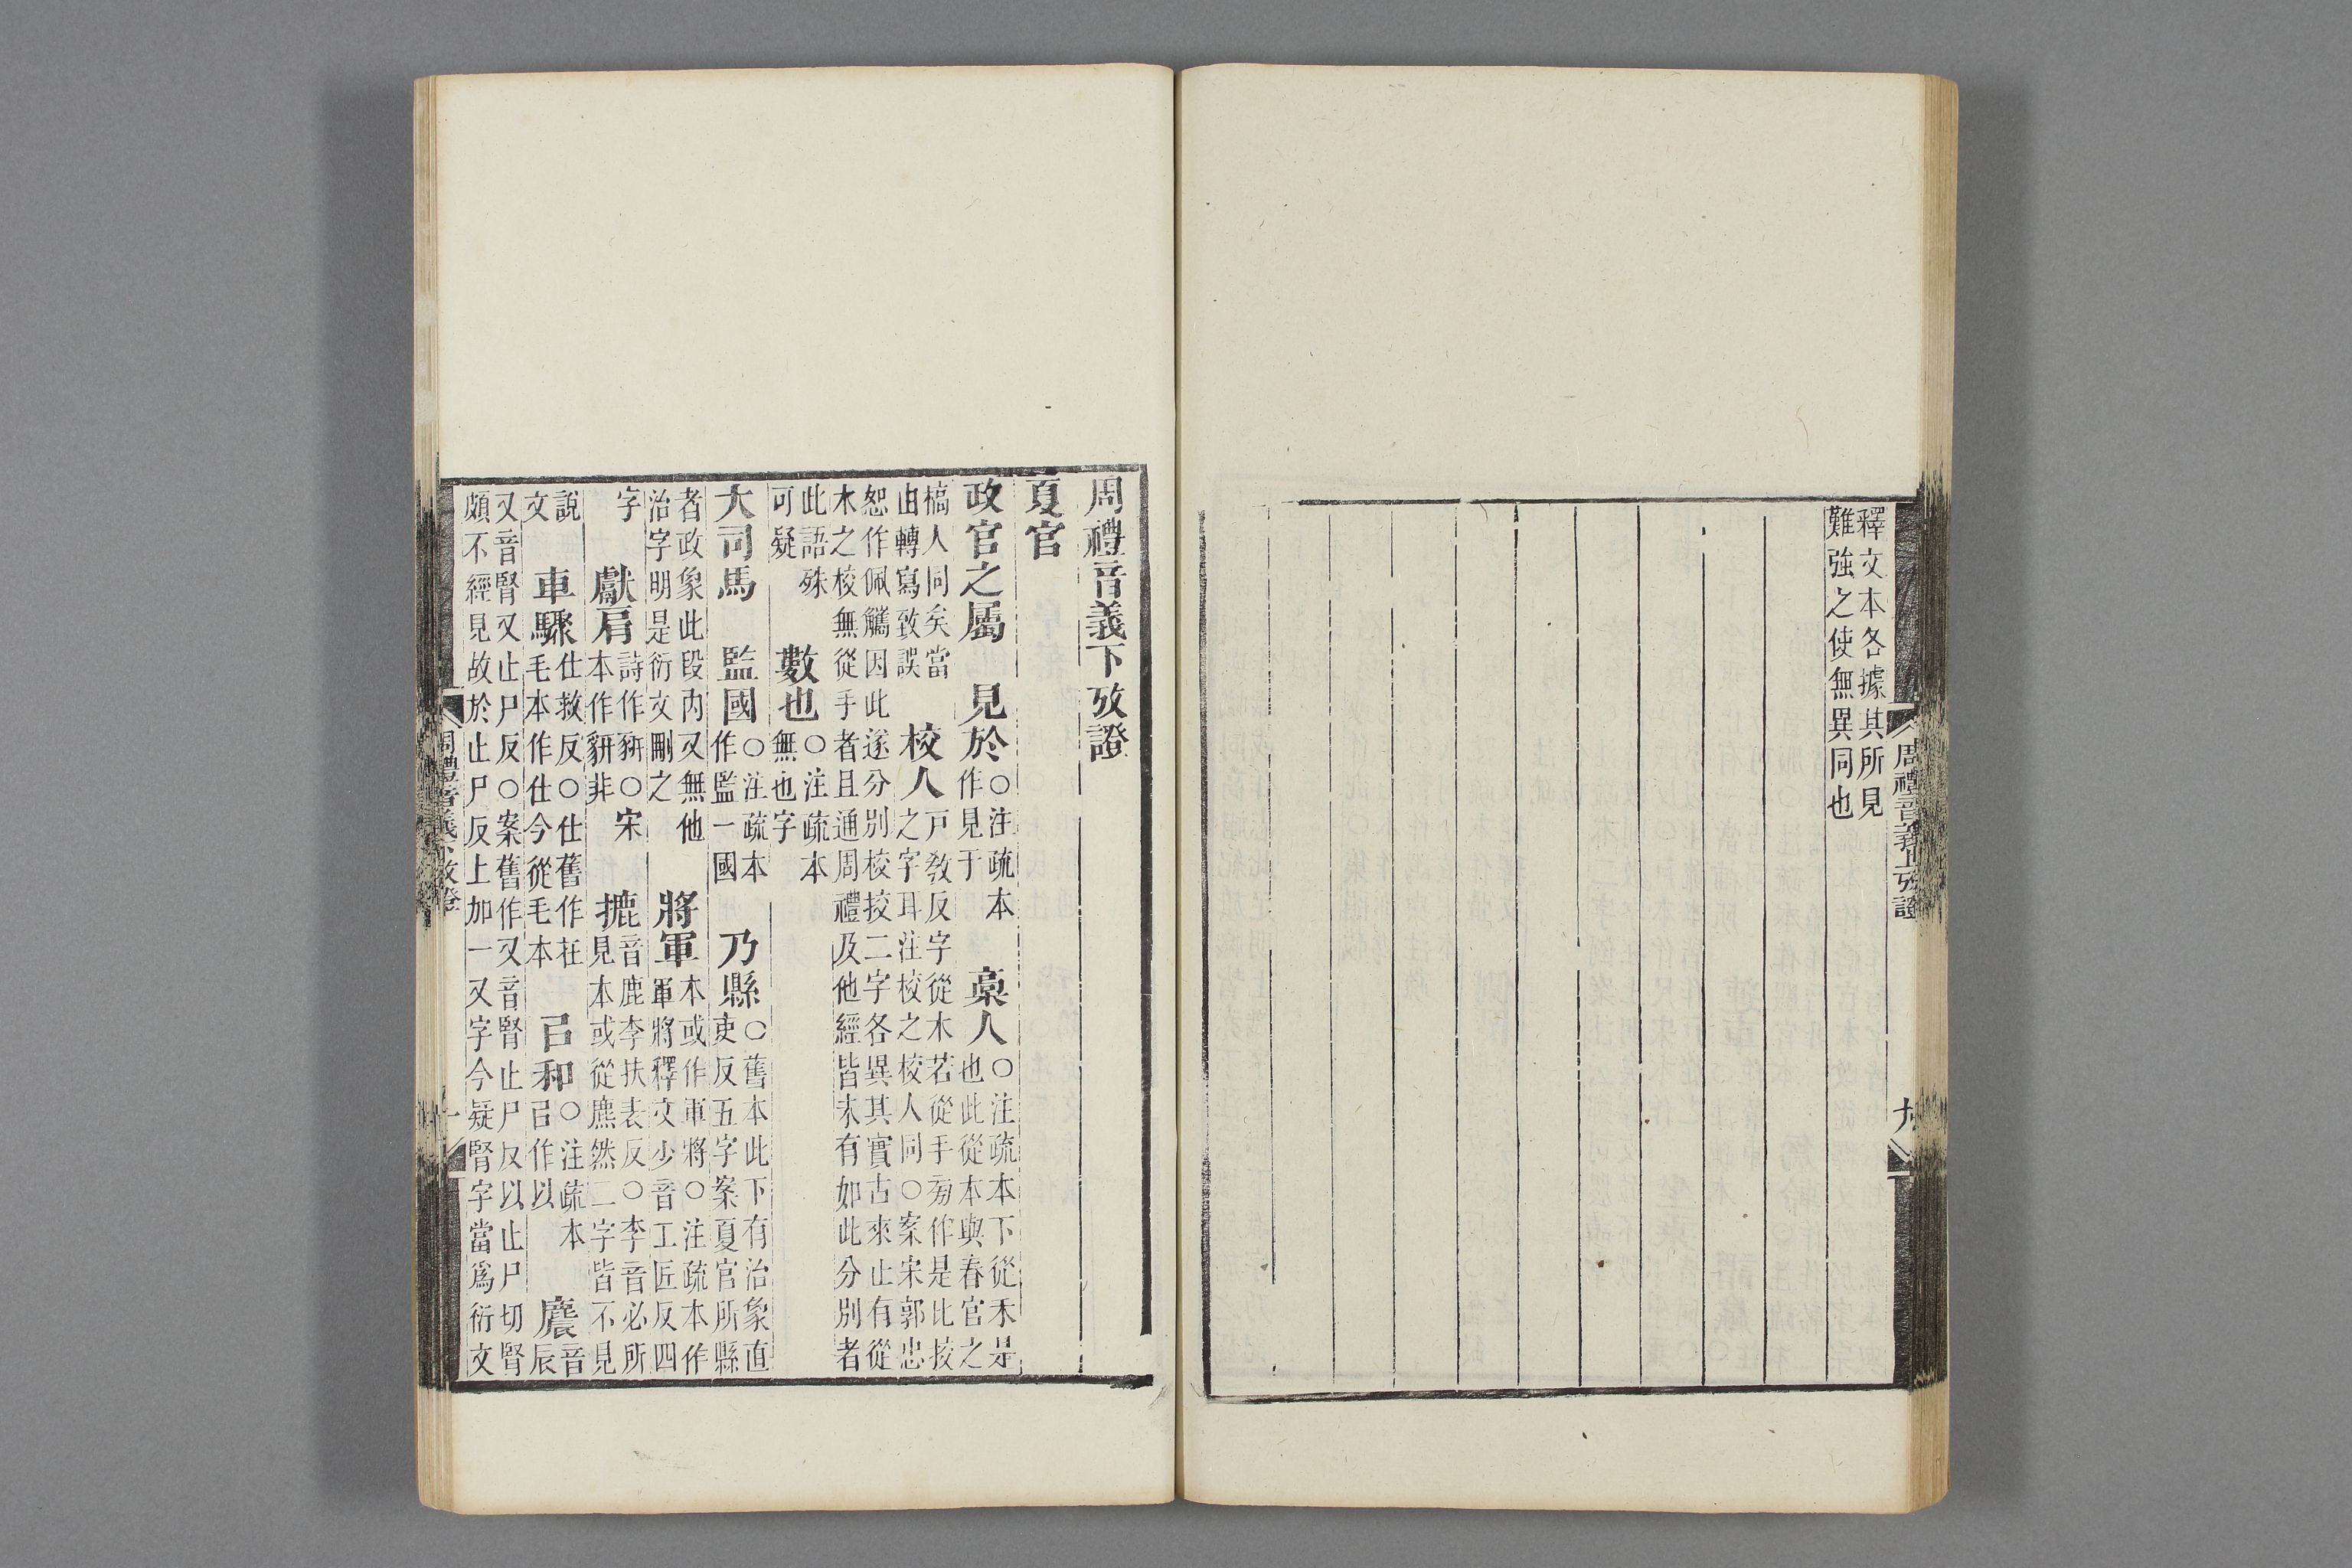 釋文本各據其所見
難強之使無異同也
周禮音義上攷證
九
周禮音義下攷證
夏官
政官之屬　見於○注疏本作見于　稾人○注疏本下從禾是也此從本與春官之
槁人同矣當由轉寫致誤　校人戸教反字從木若從手旁作是比挍之字耳注校之校人同○案宋郭忠
恕作佩觿因此遂分別校挍二字各異其實古來止有從木之校無從手者且通周禮及他經皆未有如此分別者
此語殊可疑　數也○注疏本無也字
大司馬　監國○注疏本作監一國　乃縣○舊本此下有治象直吏反五字案夏官所縣
者政象此段內又無他治字明是衍文刪之　將軍本或作軍將○注疏本作軍將釋文少音工匠反四
字　獻肩詩作豜○宋本作豣非　摝音鹿李扶表反○李音必所見本或從麃然二字皆不見
說文　車驟仕救反○仕舊作在毛本作仕今從毛本　㠯和○注疏本㠯作以　麎音辰
又音腎又止尸反○案舊作又音腎止尸反以止尸切腎
頗不經見故於止尸反上加一又字今疑腎字當爲衍文
周禮音義下攷證
一